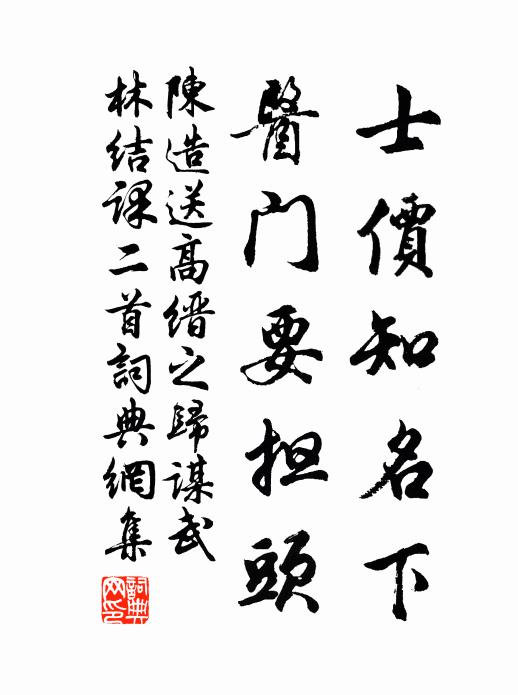 士價知名下
醫門要担頭
陳造送高缙之歸謀武
林結課二首詞典網集
詞典网印